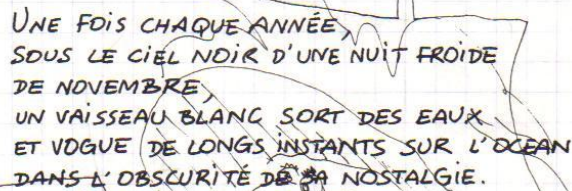 UNE FOIS CHAQUE ANNÉE,
SOUS LE CIEL NOIR D'UNE NUIT FROIDE
DE NOVEMBRE,
UN VAISSEAU BLANC SORT DES EAUX
ET VOGUE DE LONGS INSTANTS SUR L'OCEAN
DANS L'OBSCURITÉ DE SA NOSTALGIE.